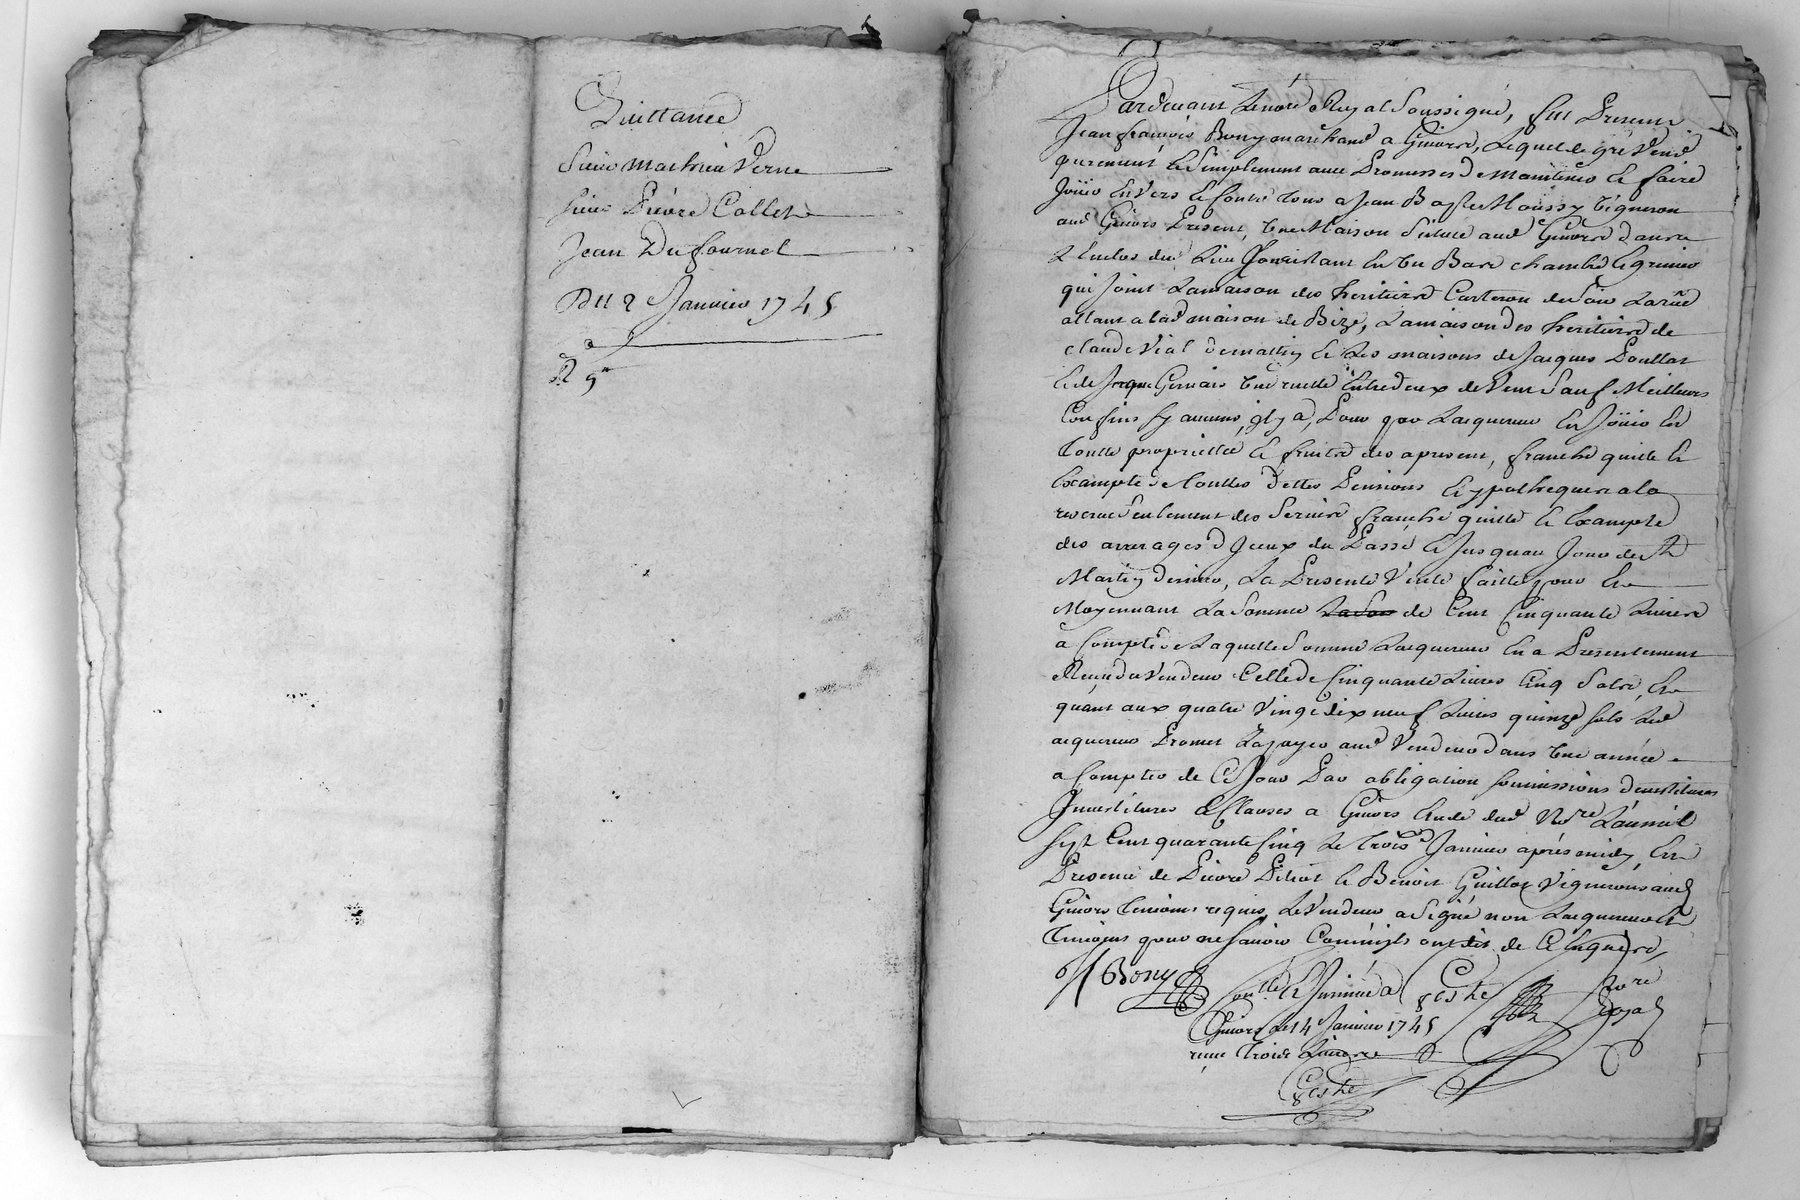 Quittance
Sieur Mathieu Verne
Sieur Pierre Collet
Jean Dufournel
Du 2 Janvier 1745
R 9
Pardevant Le no.re Royal Soussigné, fut Present
Jean francois Bony marchand a Givord, Lequel de gré Vend
purement et Simplement avec Promesses de Maintenir et faire
Joüir Envers et Contre Tous a Jean B Moussy Vigneron
aud Givors Present, Une Maison Scituée aud Givord dans
L'Enclos du Lieu Consistant En Un Bas chambre et grenier
qui Joint La maison des heritiers Carteron de Soir La rüe
allant a la maison de Bize, La maison des heritiers de
claude Vial de matin et Les maisons de Jacques Poullat
et de Jacque Gervais Une ruelle Entredeux de Vent Sauf Meilleurs
Confins Sy aucuns, Il y a, Pour par L'acquereur En Joüir En
Toutte proprietté et fruits des apresent, franche quitte et
Exampte de Touttes dettes Pensions et ypotheques a la
reserve Seulement des Servis franche quitte et Exampte
des arrerages d'Iceux du Passé et Jusquau Jour de St
Martin dernier, La Presente Vente faitte pour et
Moyennant La Somme La So de Cent Cinquante Livres
à Compte de Laquelle Somme L'acquereur En a Presentement
au Vendeur Celle de Cinquante Livres Cinq Sols, Et
quant aux quatre Vingt dix neuf Livres quinze Sols Led
acquereur Promet La payer aud Vendeur dans Une année
a Compter de Ce Jour Par obligation Soumissions
Investitures & Clauses a Givors Etude dud No.re L'an mil
Sept Cent quarante Cinq Le Trois.e Janvier aprés midy, En
Presence de Pierre et Benoit Guillot Vignerons aud
Givors Temoins requis, Le Vendeur a Signé non L'acquereur et
Temoins pour ne Scavoir Comm'ils ont dit de Ce Enquis
J f Bony
Con.lle & Insinué a
Givors Le 14 Janvier 1745
reçu Trois Livres
Geste no.re Royal
Geste